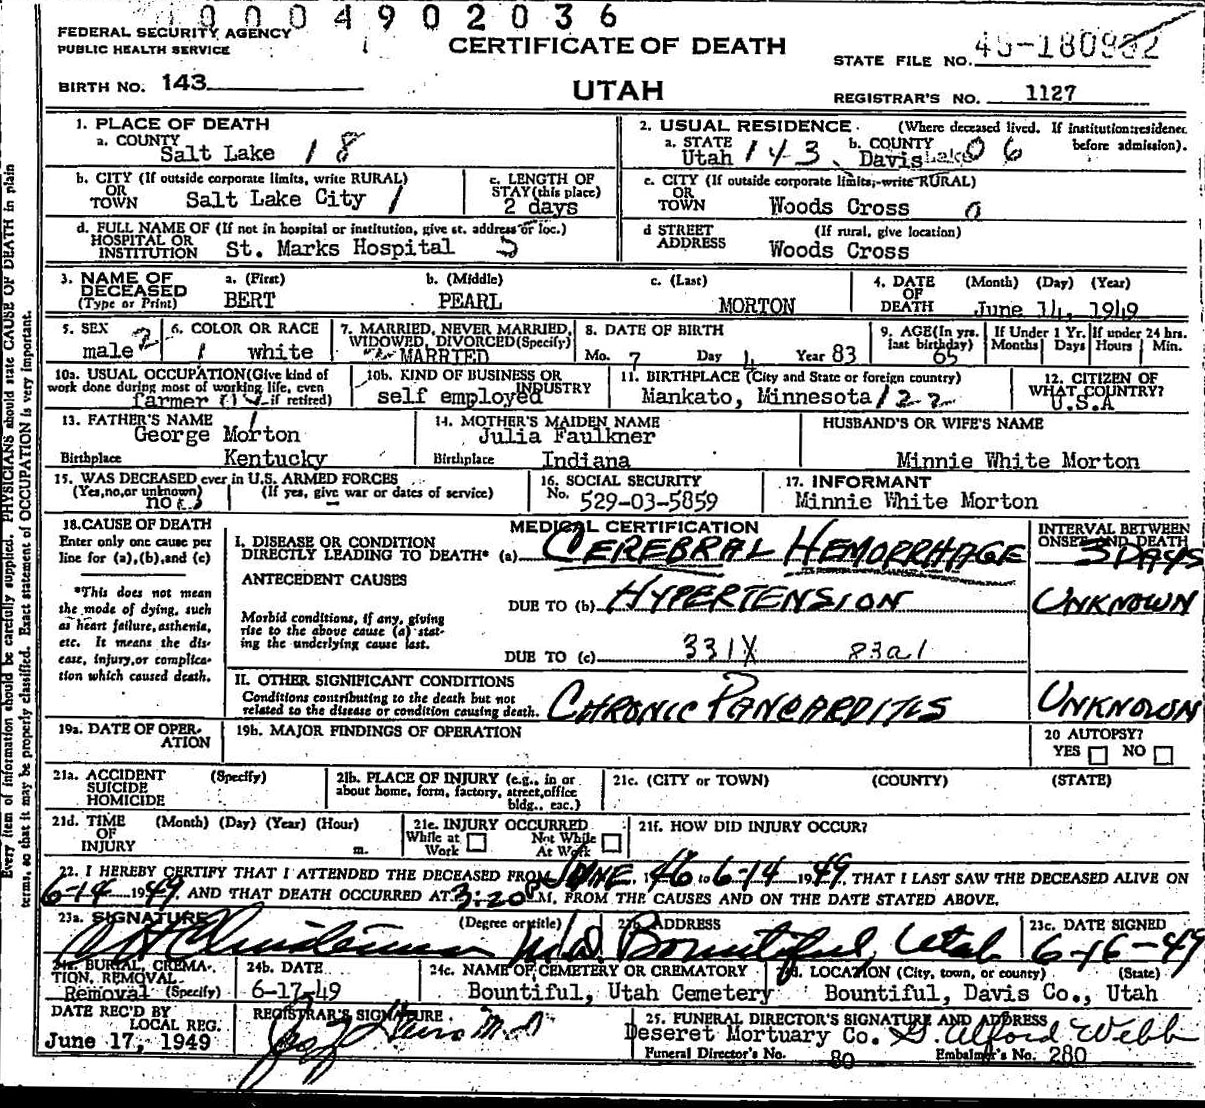 0004902036
FEDERAL SECURITY AGENCY
PUBLIC HEALTH SERVICE
CERTIFICATE OF DEATH
STATE FILE NO.
BIRTH NO. 143
UTAH
REGISTRAR'S NO. 1127
1. PLACE OF DEATH
a. COUNTY
Salt Lake 18
2. USUAL RESIDENCE (Where deceased lived. If institution: residence before admission).
a. STATE Utah 143 b. COUNTY Davis Lake 06
b. CITY (If outside corporate limits, write RURAL)
OR TOWN Salt Lake City 1
c. LENGTH OF STAY (this place)
2 days
c. CITY (If outside corporate limits, write RURAL)
OR TOWN Woods Cross 0
d. FULL NAME OF (If not in hospital or institution, give st. address or loc.)
HOSPITAL OR INSTITUTION St. Marks Hospital 5
d STREET ADDRESS (If rural, give location)
Woods Cross
3. NAME OF DECEASED (Type or Print)
a. (First) BERT
b. (Middle) PEARL
c. (Last) MORTON
4. DATE OF DEATH (Month) (Day) (Year)
June 14, 1949
5. SEX male 2
6. COLOR OR RACE
1 white
7. MARRIED, NEVER MARRIED, WIDOWED, DIVORCED (Specify)
MARRIED
8. DATE OF BIRTH
Mo. 7 Day 4 Year 83
9. AGE (In yrs. last birthday)
65
If Under 1 Yr. Months Days
If under 24 hrs. Hours Min.
10a. USUAL OCCUPATION (Give kind of work done during most of working life, even if retired)
farmer
10b. KIND OF BUSINESS OR INDUSTRY
self employed
11. BIRTHPLACE (City and State or foreign country)
Mankato, Minnesota 122
12. CITIZEN OF WHAT COUNTRY?
U.S.A
13. FATHER'S NAME
George Morton
Birthplace Kentucky
14. MOTHER'S MAIDEN NAME
Julia Faulkner
Birthplace Indiana
HUSBAND'S OR WIFE'S NAME
Minnie White Morton
15. WAS DECEASED ever in U.S. ARMED FORCES
(Yes, no, or unknown) (If yes, give war or dates of service)
no -
16. SOCIAL SECURITY
No. 529-03-5859
17. INFORMANT
Minnie White Morton
18. CAUSE OF DEATH
Enter only one cause per line for (a), (b), and (c)
*This does not mean the mode of dying, such as heart failure, asthenia, etc. It means the disease, injury, or complication which caused death.
MEDICAL CERTIFICATION
I. DISEASE OR CONDITION
DIRECTLY LEADING TO DEATH* (a) CEREBRAL HEMORRHAGE
INTERVAL BETWEEN ONSET AND DEATH
3 DAYS
ANTECEDENT CAUSES
DUE TO (b) HYPERTENSION
UNKNOWN
Morbid conditions, if any, giving rise to the above cause (a) stating the underlying cause last.
DUE TO (c) 331X 83a1
II. OTHER SIGNIFICANT CONDITIONS
Conditions contributing to the death but not related to the disease or condition causing death.
CHRONIC PANCARDITIS
UNKNOWN
19a. DATE OF OPERATION
19b. MAJOR FINDINGS OF OPERATION
20 AUTOPSY?
YES NO
21a. ACCIDENT SUICIDE HOMICIDE (Specify)
21b. PLACE OF INJURY (e.g., in or about home, form, factory, street, office bldg., eac.)
21c. (CITY or TOWN) (COUNTY) (STATE)
21d. TIME OF INJURY (Month) (Day) (Year) (Hour) m.
21e. INJURY OCCURRED
While at Work Not While At Work
21f. HOW DID INJURY OCCUR?
22. I HEREBY CERTIFY THAT I ATTENDED THE DECEASED FROM JUNE, 1946 to 6-14 1949, THAT I LAST SAW THE DECEASED ALIVE ON
6-14 1949 AND THAT DEATH OCCURRED AT 3:20 P M, FROM THE CAUSES AND ON THE DATE STATED ABOVE.
23a. SIGNATURE (Degree or title) M.D.
23b ADDRESS
Bountiful, Utah
23c. DATE SIGNED
6-16-49
24a. BURIAL, CREMATION, REMOVAL (Specify)
Removal
24b. DATE
6-17-49
24c. NAME OF CEMETERY OR CREMATORY
Bountiful, Utah Cemetery
24d. LOCATION (City, town, or county) (State)
Bountiful, Davis Co., Utah
DATE REC'D BY LOCAL REG.
June 17, 1949
REGISTRAR'S SIGNATURE
25. FUNERAL DIRECTOR'S SIGNATURE AND ADDRESS
Deseret Mortuary Co. G. Alford Webb
Funeral Director's No. 80 Embalmer's No. 280
Every item of information should be carefully supplied. PHYSICIANS should state CAUSE OF DEATH in plain
terms, so that it may be properly classified. Exact statement of OCCUPATION is very important.